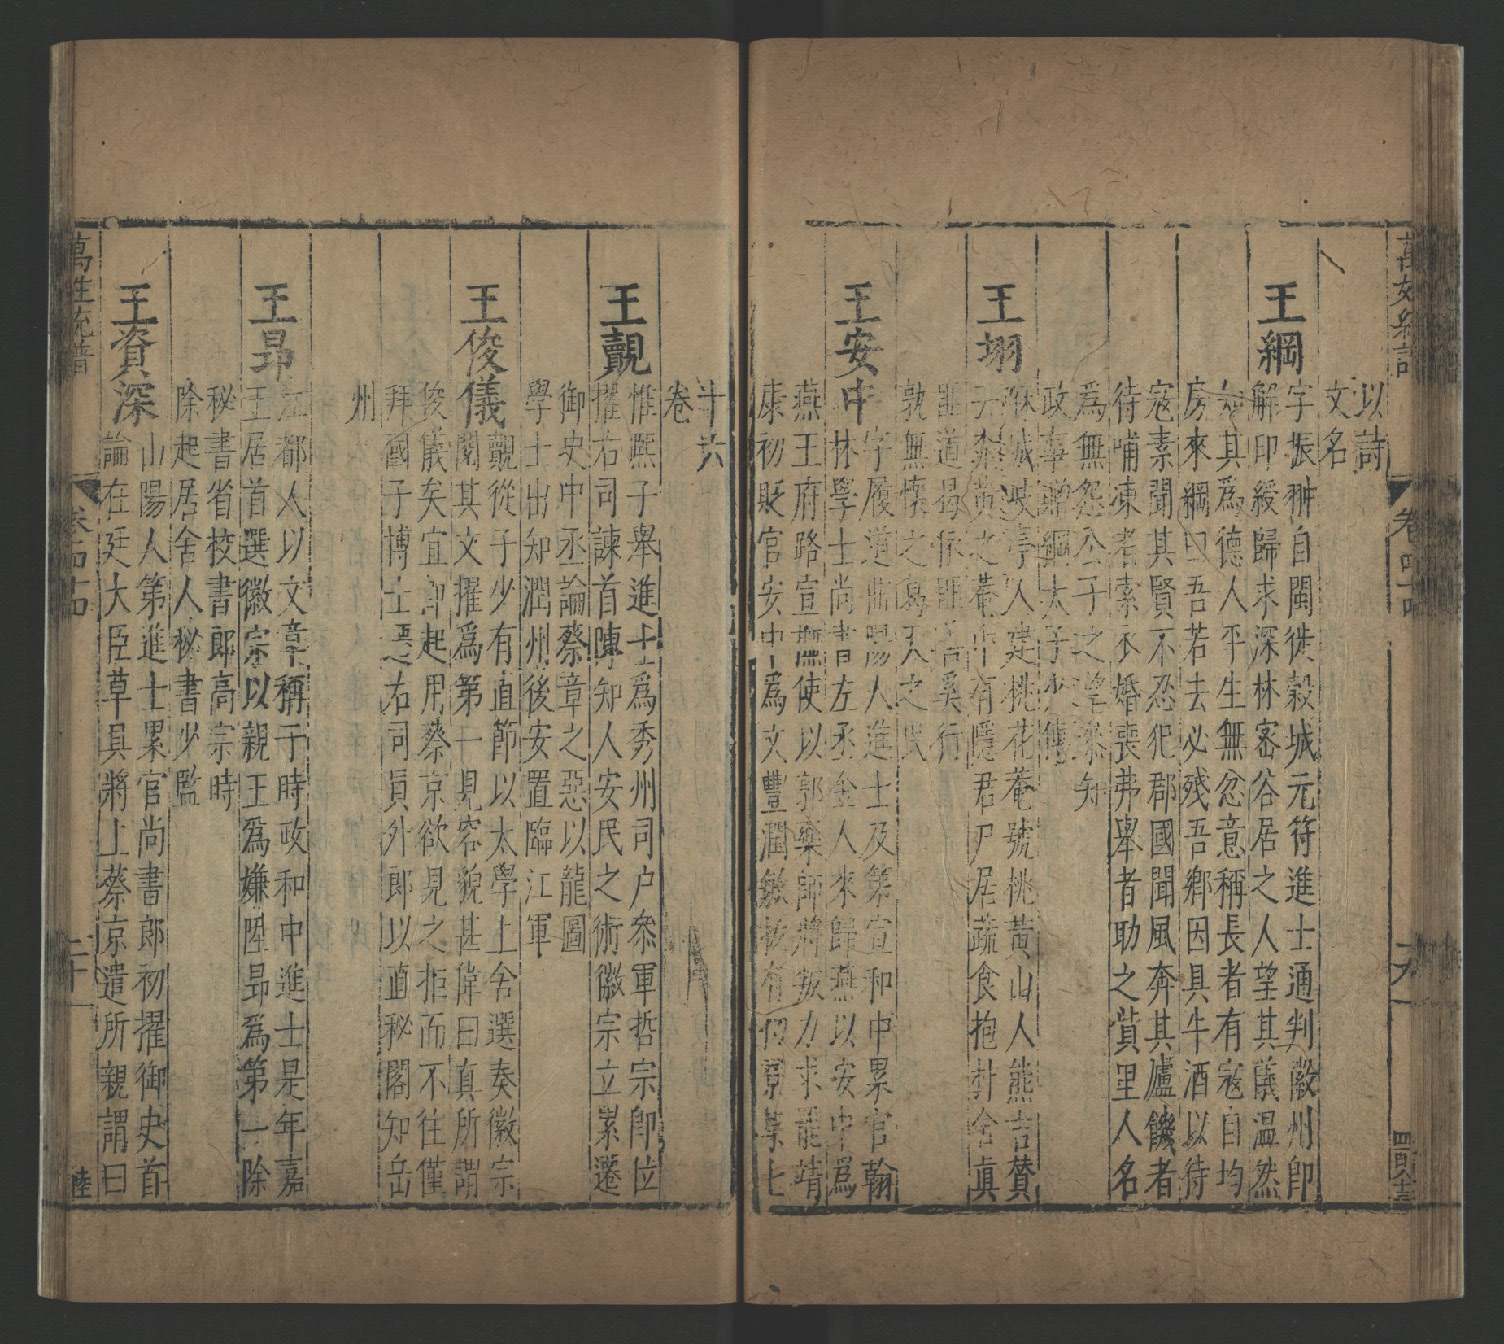 以詩
文名
王綱
字振翀自閩徙穀城元符進士通判徽州卽
解印綬歸求深林密谷居之人望其儀溫然
知其爲德人平生無忿意稱長者有寇自均
房來綱曰吾若去必殘吾鄉因具牛酒以待
寇素聞其賢不忍犯郡國聞風奔其廬饑者
待哺凍者索衣婚喪弗舉者助之貲里人名
爲無怨公子之望宷知
政事贈綱太子少傅
王堋
峽人建桃花菴號桃黃山人熊吉贊
之菴中有隱君尸居蔬食抱朴含眞
道
敦無懷之葛天之民
王安中
字履道陽人進士及第宣和中累官翰
林學士尚書左丞金人來歸燕以安中爲
燕王府路宣撫使以郭藥師將叛力求罷靖
康初貶官安中爲文豐潤敏
十六
卷
王覿
惟熙子舉進士爲秀州司户叅軍哲宗卽位
擢右司諫首陳知人安民之術徽宗立累遷
御史中丞論蔡章之惡以龍圖
學士出知潤州後安置臨江軍
王俊儀
覿從子少有直節以太學上舍選奏徽宗
閱其文擢爲第一見容貌甚偉曰眞所謂
俊儀矣宜卽起用蔡京欲見之拒而不往僅
拜國子博士遷右司員外郎以直秘閣知岳
州
王昂
江都人以文章稱于時政和中進士是年嘉
王居首選徽宗以親王爲嫌陞昂爲第一除
秘書省校書郎高宗時
除起居舍人秘書少監
王資深
山陽人第進士累官尚書郎初擢御史首
論在廷大臣草具將上蔡京遣所親謂曰
萬姓統譜
卷四十四
二十一